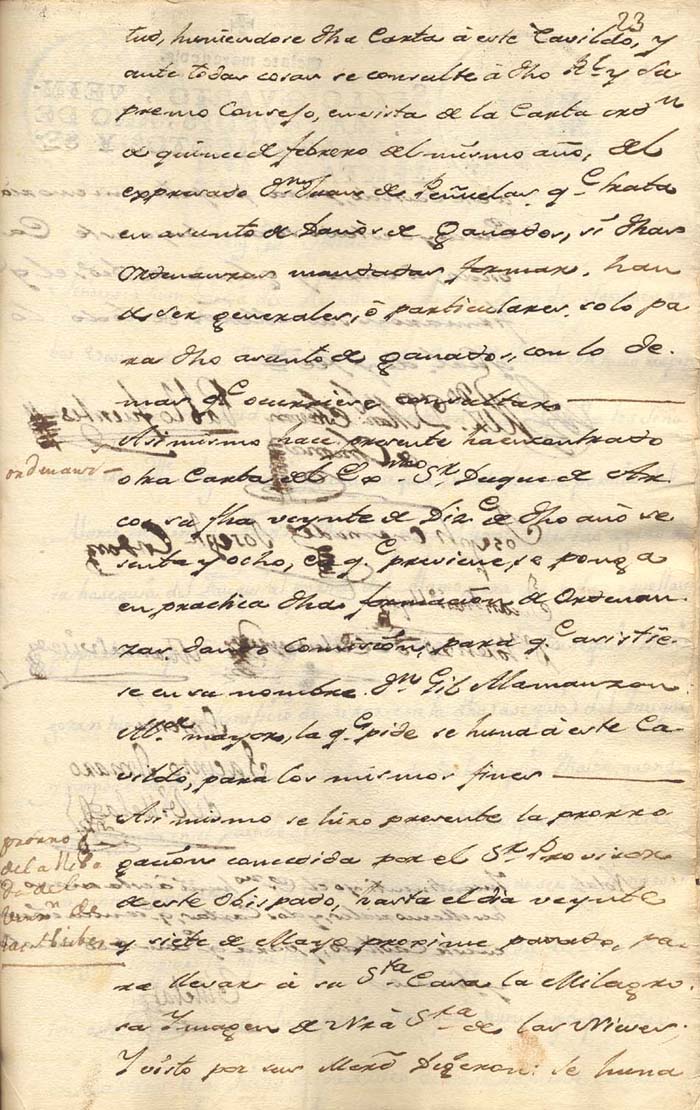 23
tud, huniendose dha Carta à este Cavildo, y
ante todas cosas se consulte à dho Rl. y Su
premo Consejo, en vista de la Carta ordn
de quince de febrero del mismo año, del
expresado Dn Juan de Peñuelas, qe trata
en asunto de Daños de ganados, si dhas
Ordenanzas mandadas formar, han
de ser generales, ò particulares, solo pa
ra dho asunto de ganados, con lo de-
mas qe ocurriere consultar
Asi mismo hace presente ha encontrado
ordenans
otra Carta del Exmo Sr. Duque de Ar
cos, su fha veynte de Dize de dho año se
senta y ocho, en qe previene, se ponga
en practica dha formación de Ordenan
zas, dando Comisión, para qe asistie-
se en su nombre Dn Gil Mamanzon
Alde mayor, la qe pide se huna à este Ca-
vildo, para los mismos fines
Asi mismo se hizo presente la prorro
gación concedida por el Sr. Provisor
de este Obispado, hasta el día veynte
y siete de Mayo proximo pasado, pa
ra llevar à su Sta Casa la Milagro
sa Ymagen de Nrà Sta de las Nieves,
Y visto por sus Merds Dixeron: se huna